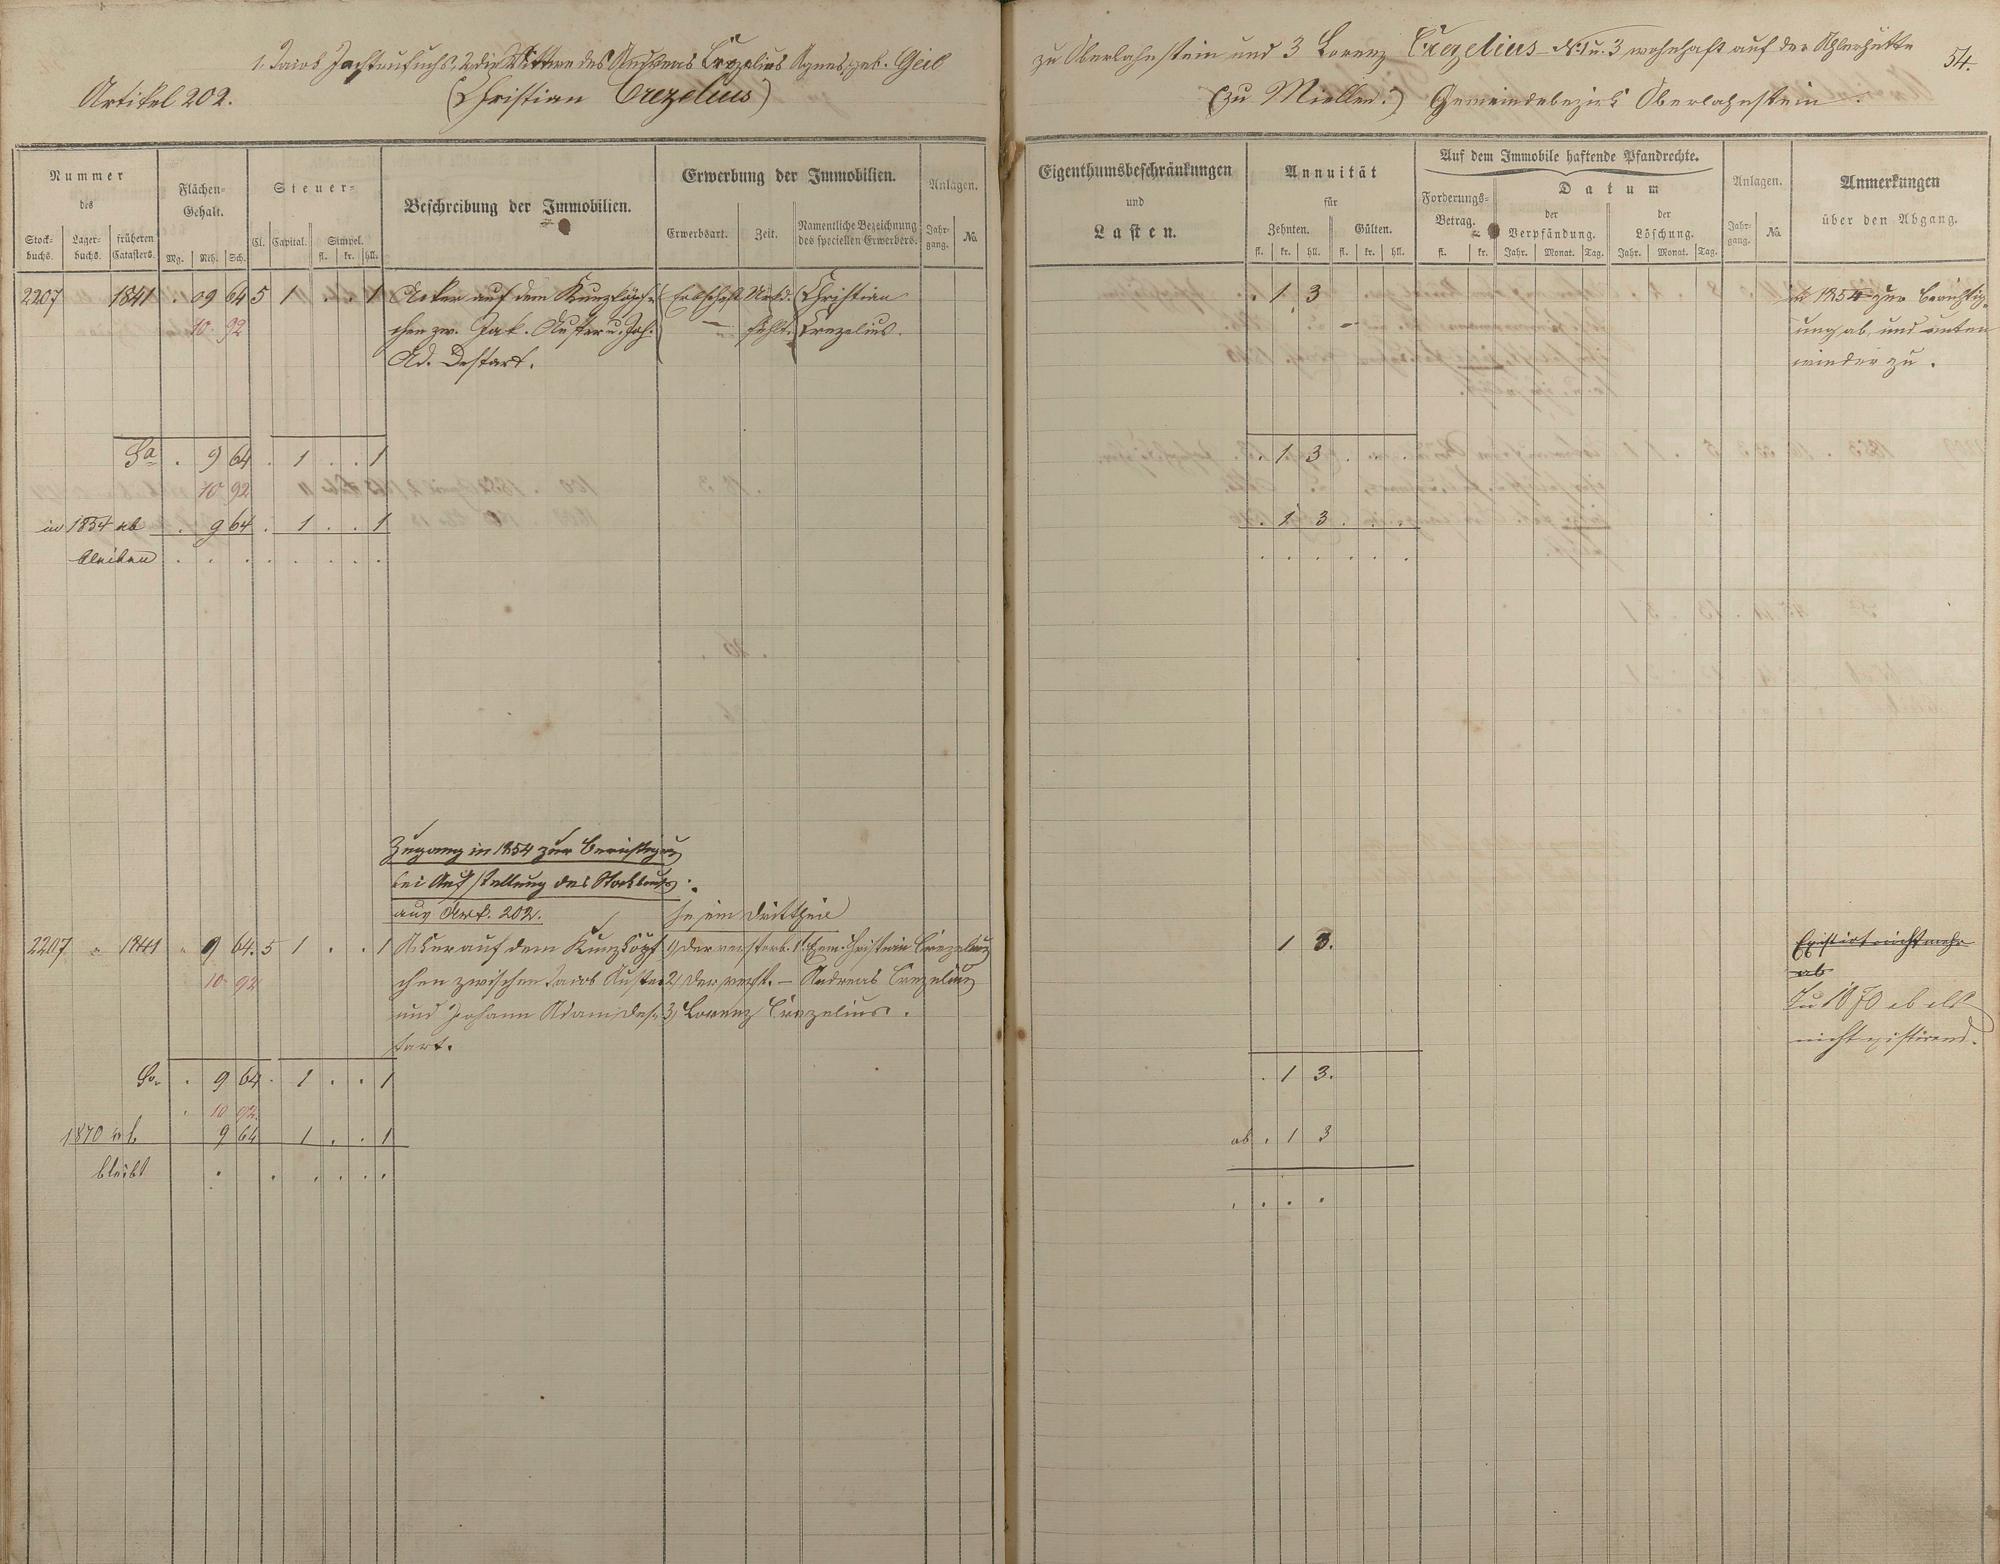 1. Jacob 2. die Wittwe des Andreas Crezelius Agnes geb. Geil
zu Oberlahnstein und 3 Lorenz Crezelius No. 1 u. 3 wohnhaft auf der Ahlerhütte
54.
Artikel 202.
(Christian Crezelius)
(zu Miellen.) Gemeindebezirk Oberlahnstein.
Nummer
des
Stock-
buchs.
Lager-
buchs.
früheren
Catasters.
Flächen-
Gehalt.
Mg. Rth. Sch.
Steuer-
Cl. Capital. Simpel.
fl. kr. hll.
Beschreibung der Immobilien.
Erwerbung der Immobilien.
Erwerbsart. Zeit.
Namentliche Bezeichnung
des speciellen Erwerbers.
Anlagen.
Jahr-
gang. No.
Eigenthumsbeschränkungen
und
Lasten.
Annuität
für
Zehnten. Gülten.
fl. kr. hll. fl. kr. hll.
Auf dem Immobile haftende Pfandrechte.
Forderungs-
Betrag.
fl. kr.
Datum
der
Verpfändung.
Jahr. Monat. Tag.
der
Löschung.
Jahr. Monat. Tag.
Anlagen.
Jahr-
gang. No.
Anmerkungen
über den Abgang.
2207 1841 . 09 64 5 1 . . 1 Acker auf dem Kunzköpf- Erbschaft Urkd. Christian . 1 3 in 1854 zur Berichtig-
10 92 chen zw. Jak. Kuster u. Joh. — fehlt. Crezelius. — ung ab und unten
Ad. Destart. wieder zu.
Sa . 9 64 . 1 . . 1 . 1 3 . . .
10 92
in 1854 ab . 9 64 . 1 . . 1 . 1 3 . . .
bleiben . . . . . . . . . . . . . .
Zugang in 1854 zur Berichtigung
bei Aufstellung des Stockbuchs.
aus Art. 202. Je ein Drittheil
2207 " 1841 " 9 64. 5 1 . . 1 Acker auf dem Kunzköpf 1) der verstorb. Christian Crezelius 1 3. Existirt nicht mehr
10 92 chen zwischen Jacob Kuster 2) der verst. — Andreas Crezelius ab
und Johann Adam Des- 3) Lorenz Crezelius. In 1870 ab als
tart. nicht existirend.
Sa. . 9 64 . 1 . . 1 . 1 3.
. 10 92.
1870 ab 9 64 1 . . 1 ab . 1 3
bleibt . . . . . . . . . .